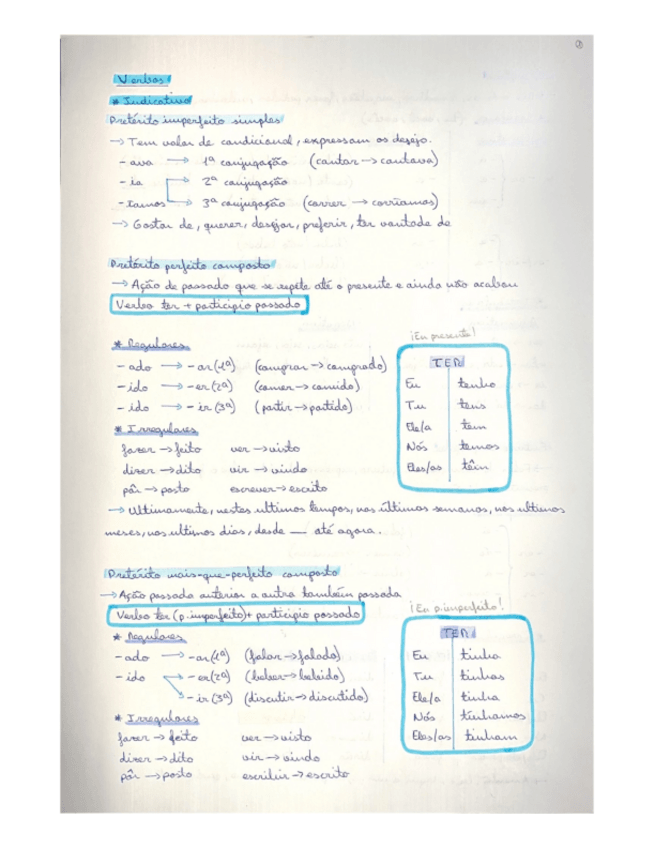 ①
Verbos
* Indicativo
Pretérito imperfeito simples
→ Tem valor de condicional, expressam os desejo.
- ava → 1ª conjugação (cantar → cantava)
- ia → 2ª conjugação
- íamos → 3ª conjugação (correr → corríamos)
→ Gostar de, querer, desejar, preferir, ter vontade de
Pretérito perfeito composto
→ Ação de passado que se repete até o presente e ainda não acabou
Verbo ter + particípio passado
* Regulares
- ado → -ar (1ª) (comprar → comprado)
- ido → -er (2ª) (comer → comido)
- ido → -ir (3ª) (partir → partido)
* Irregulares
fazer → feito ver → visto
dizer → dito vir → vindo
pôr → posto escrever → escrito
¡En presente!
TER
Eu tenho
Tu tens
Ele/a tem
Nós temos
Eles/as têm
→ Ultimamente, nestes ultimos tempos, nas últimas semanas, nos ultimos
meses, nos ultimos dias, desde __ até agora.
Pretérito mais-que-perfeito composto
→ Ação passada anterior a outra também passada
Verbo ter (p. imperfeito) + particípio passado
* Regulares
- ado → -ar (1ª) (falar → falado)
- ido → -er (2ª) (beber → bebido)
→ -ir (3ª) (discutir → discutido)
* Irregulares
fazer → feito ver → visto
dizer → dito vir → vindo
pôr → posto escribir → escrito
¡En p. imperfeito!
TER
Eu tinha
Tu tinhas
Ele/a tinha
Nós tínhamos
Eles/as tinham